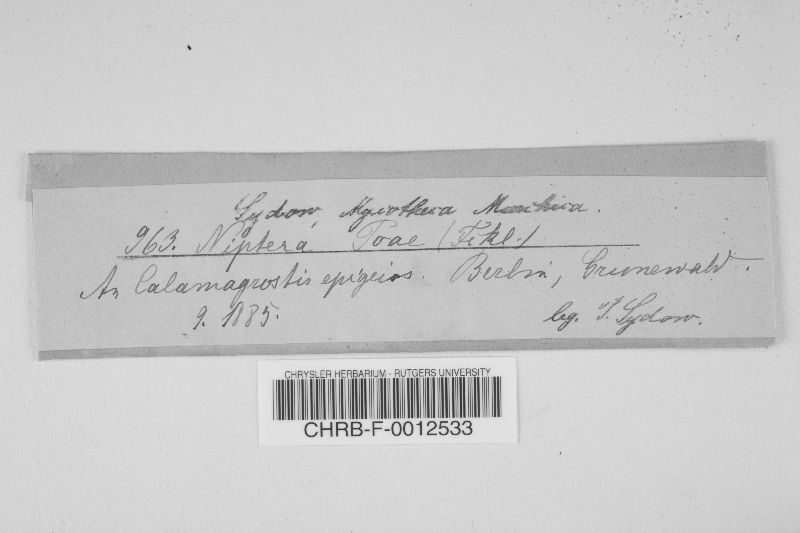 Sydow, Mycotheca Marchica.
963. Niptera Poae (Fckl.)
An Calamagrostis epigeios. Berlin, Grunewald.
9. 1885.
leg. P. Sydow.
CHRYSLER HERBARIUM - RUTGERS UNIVERSITY
CHRB-F-0012533